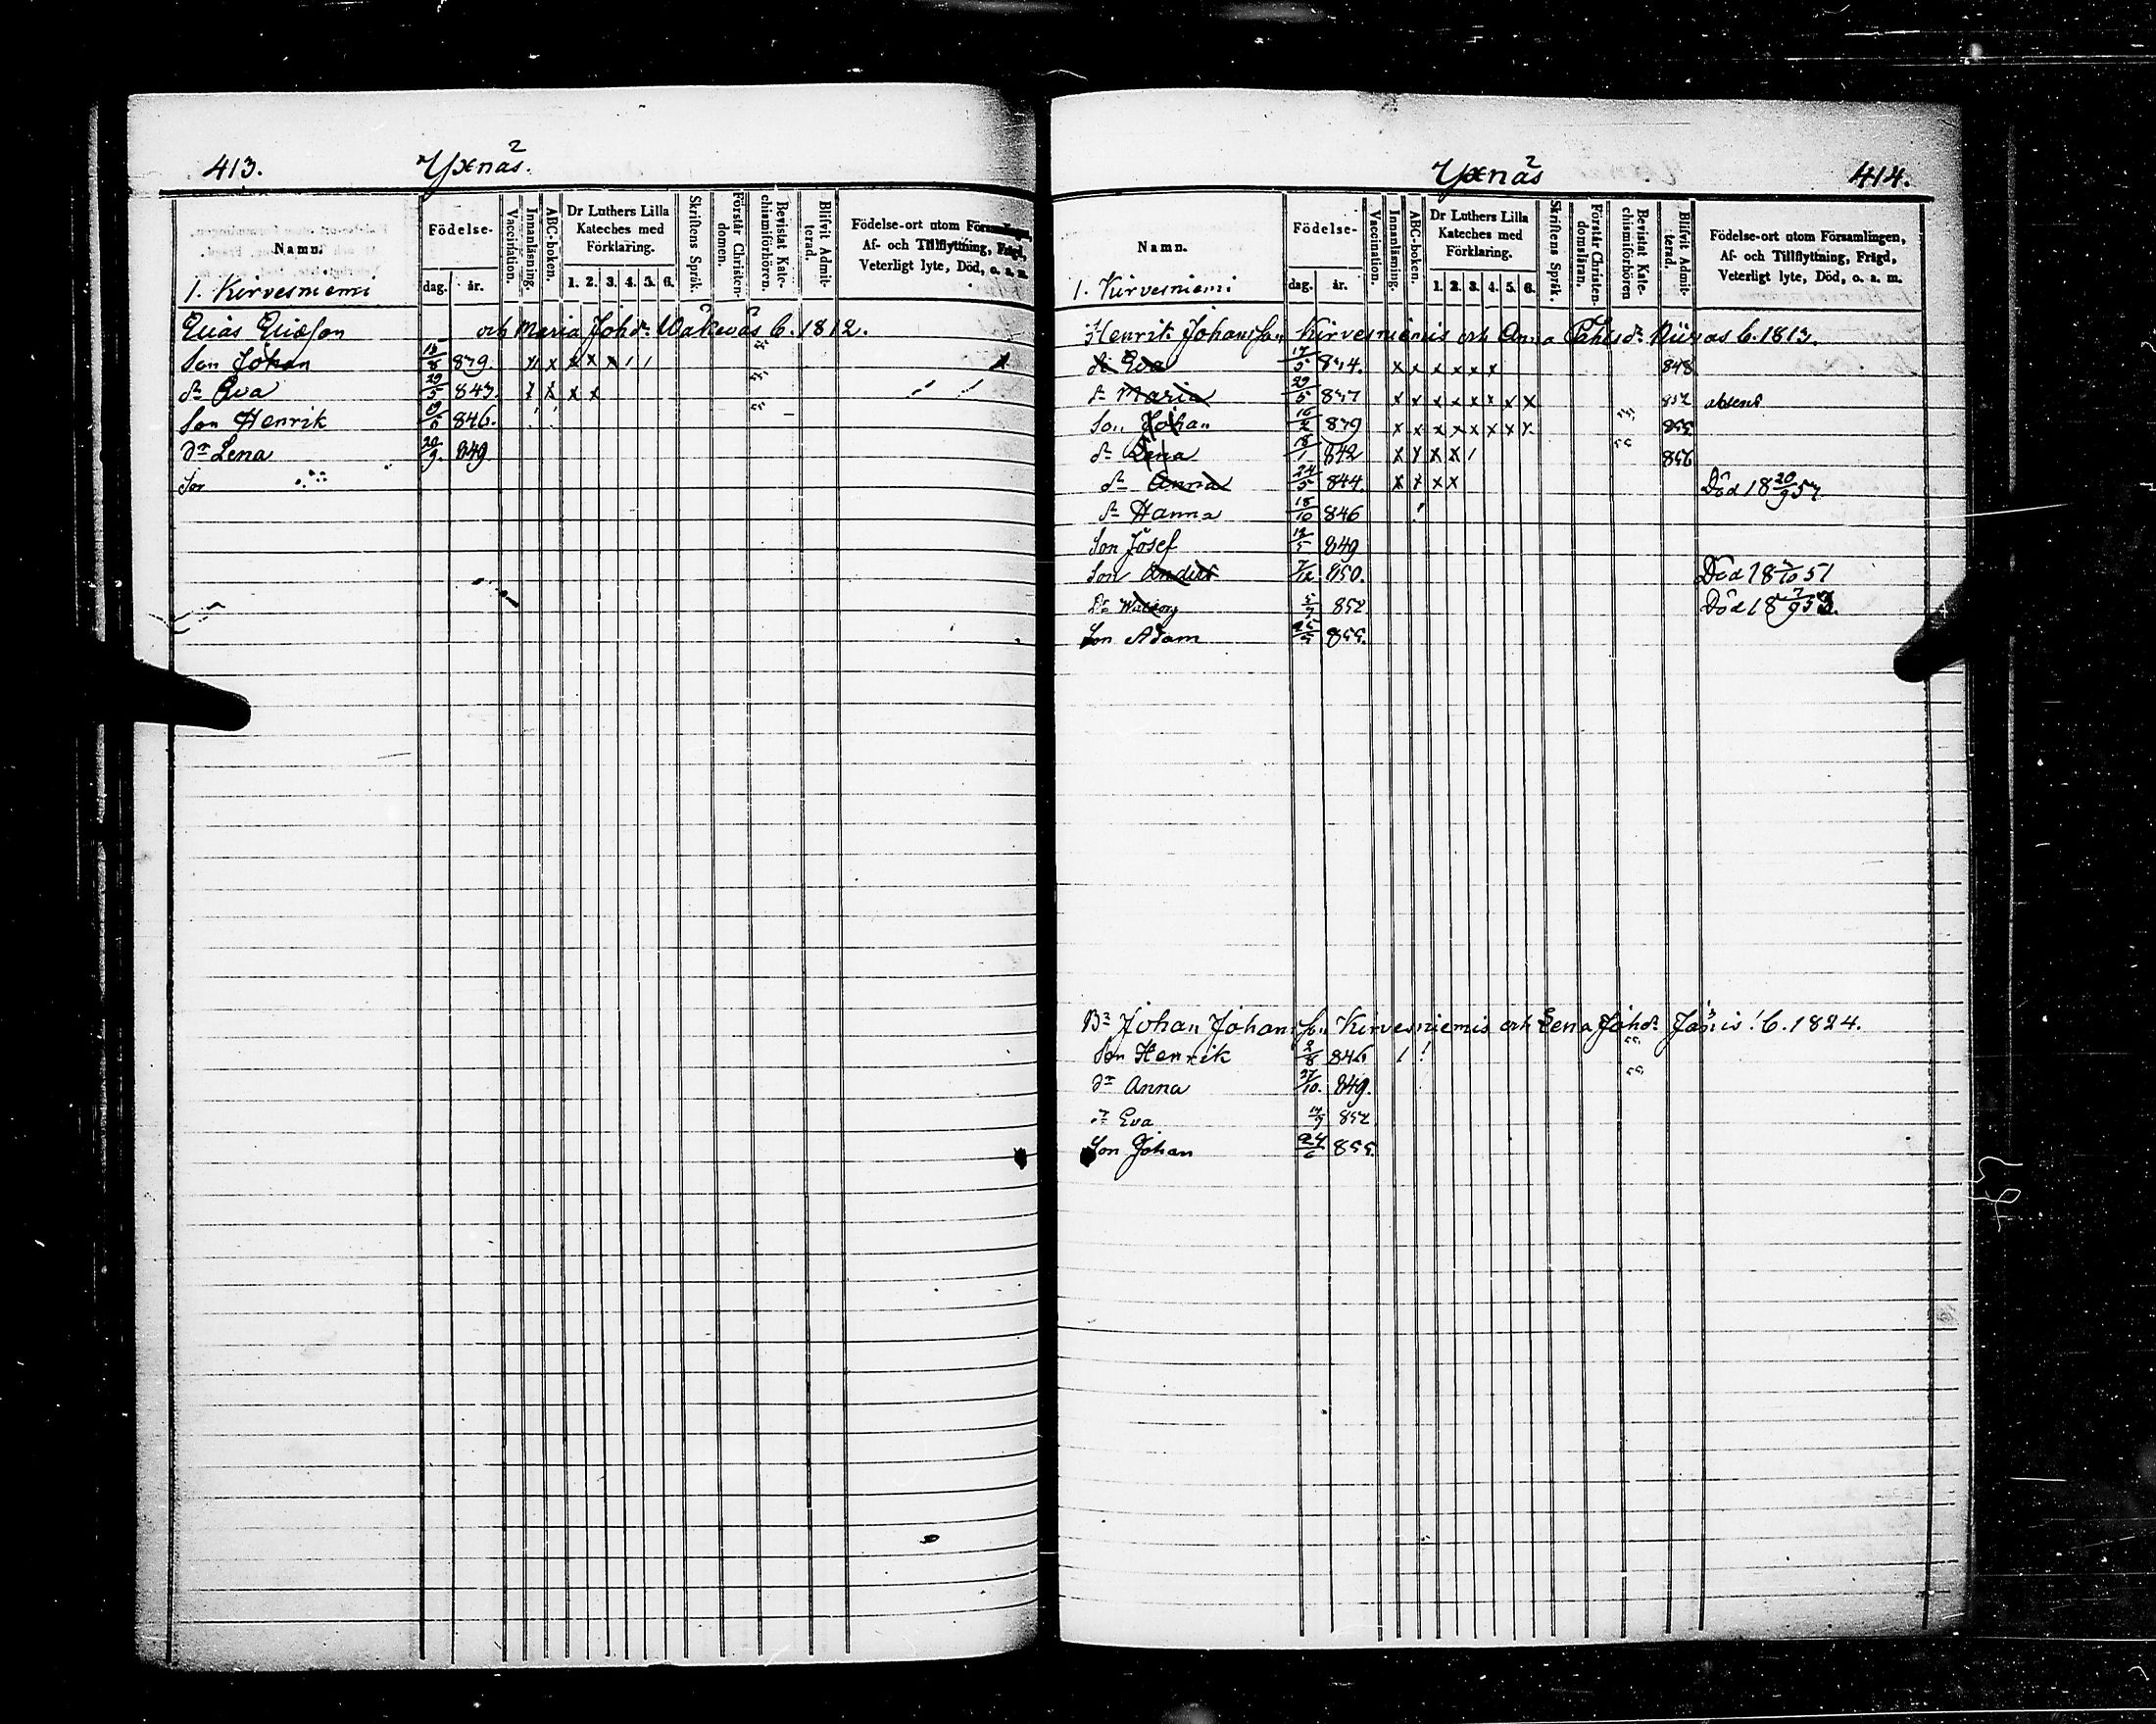 413. Yxnäs.
Namn.
Födelse-
Vaccination.
Innanläsning.
ABC-boken.
Dr Luthers Lilla Kateches med Förklaring.
Skriftens Språk.
Förstår Christendomen.
Bevistat Katechismiförhören.
Blifvit Admitterad.
Födelse-ort utom Församlingen,
Af- och Tillflyttning, Frägd,
Veterligt lyte, Död, o. a. m.
1. Kirvesniemi dag. år. 1. 2. 3. 4. 5. 6.
Elias Eliasson och Maria Johdr 6. 1812.
Son Johan 839. x x x x x / /
dr Eva 29/5 843. x x x x
Son Henrik 846.
dr Lena 20/9. 849
Son
Yxnäs 414.
Namn.
Födelse-
Vaccination.
Innanläsning.
ABC-boken.
Dr Luthers Lilla Kateches med Förklaring.
Skriftens Språk.
Förstår Christendomsläran.
Bevistat Katechismiförhören
Blifvit Admitterad.
Födelse-ort utom Församlingen,
Af- och Tillflyttning, Frägd,
Veterligt lyte, Död, o. a. m.
1. Kirvesniemi dag. år. 1. 2. 3. 4. 5. 6.
Henrik Johansson Kirvesniemis och Anna 6. 1813.
dr Eva 17/5 834. x x x x x x 848
dr Maria 29/5 837 x x x x x x x x 852 absens
Son Johan 16/2 839 x x x x x x x x 855
dr Lena 18/1 842 x x x x / 856
dr Anna 24/5 844. x x x x Död 18 20/9 57
dr Hanna 18/10 846 !
Son Josef 12/5 849
Son Anders 7/12 850. Död 18 /10 51
Dr 852 Död 18 7/9 53.
Son Adam 855.
Br Johan Johansson Kirvesniemis och Lena Johdr Jänis 6. 1824.
Son Henrik 2/8 846 / !
dr Anna 27/10. 849.
dr Eva 852
Son Johan 24/6 855.